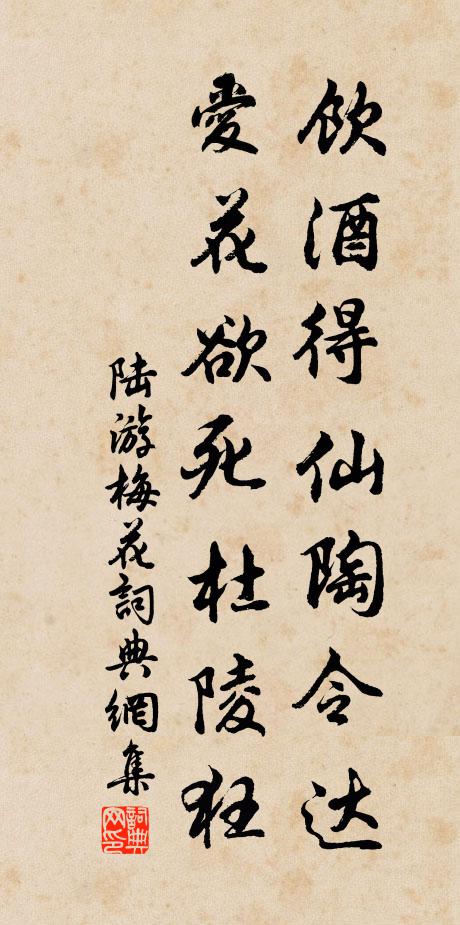 飲酒得仙陶令达
愛花欲死杜陵狂
陆游梅花詞典網集
詞典网印